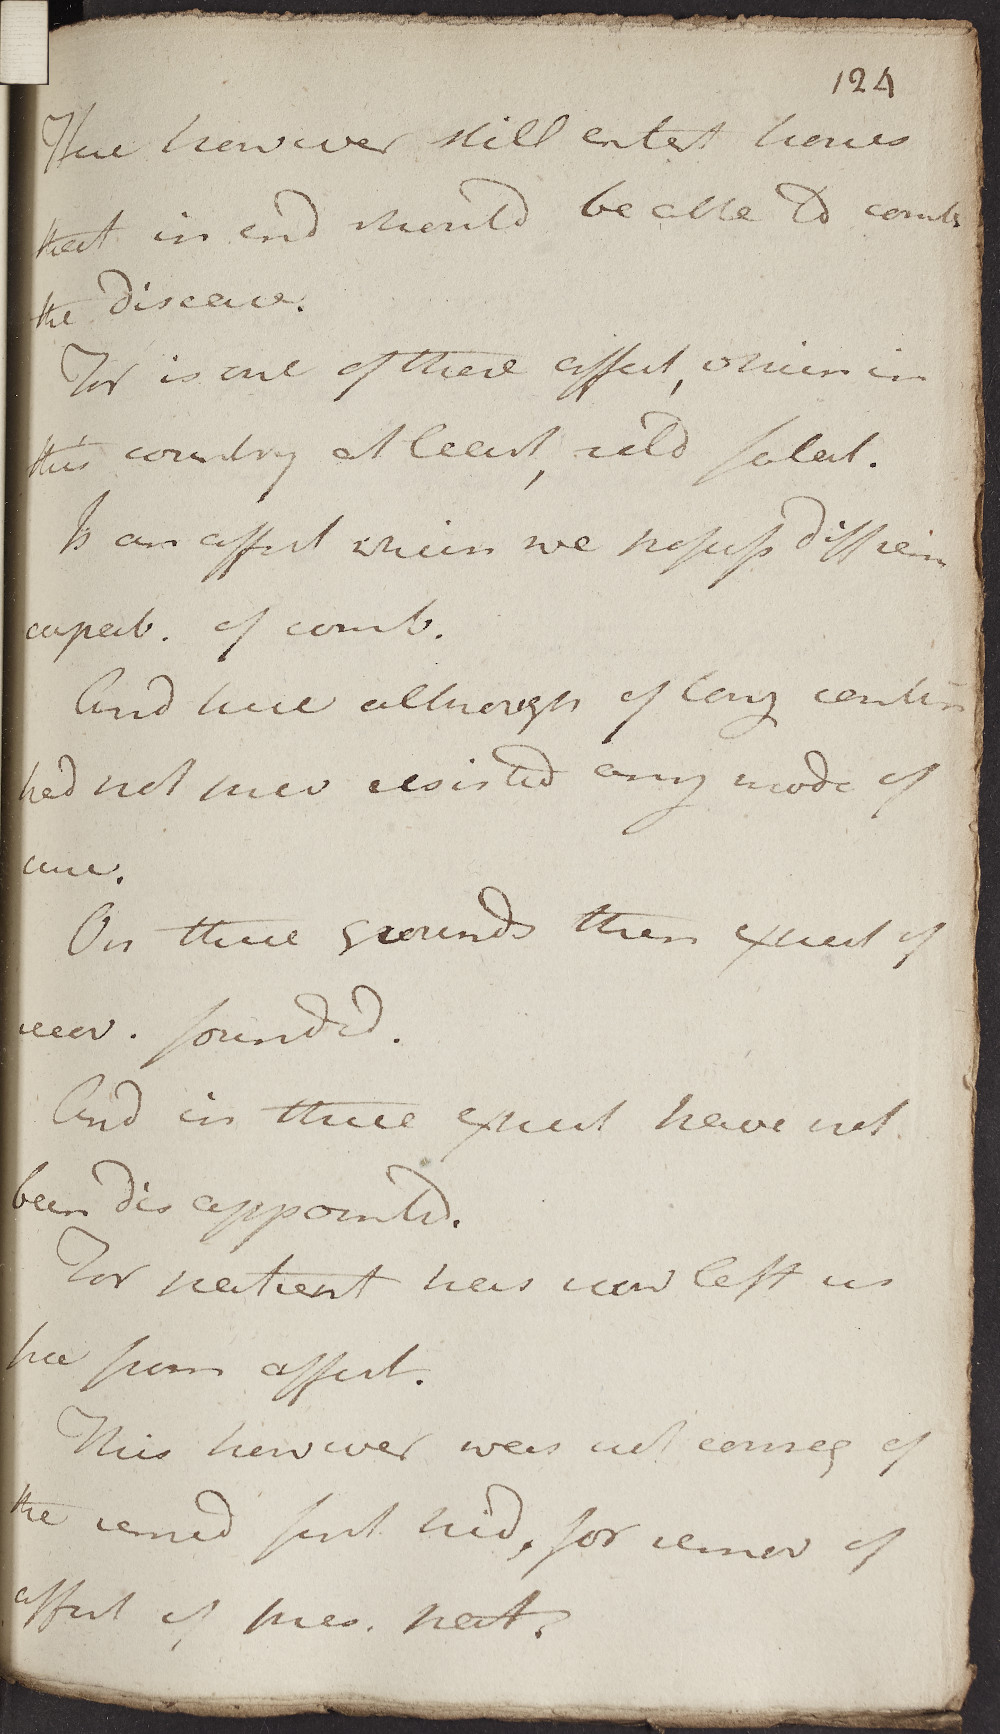 124
Here however still entert hopes
that in end should be able to comb
the disease.
For is one of those affect, which in
this country at least, seld fatal.
Is an affect which we possess diff rem
capab. of comb.
And here although of long contin
had not prev resisted any mode of
cure.
On these grounds then expect of
recov. founded.
And in these expect have not
been disappointed.
For patient has now left us
free from affect.
This however was not conseq of
the remed first tried, for remov of
affect of pres. nat.